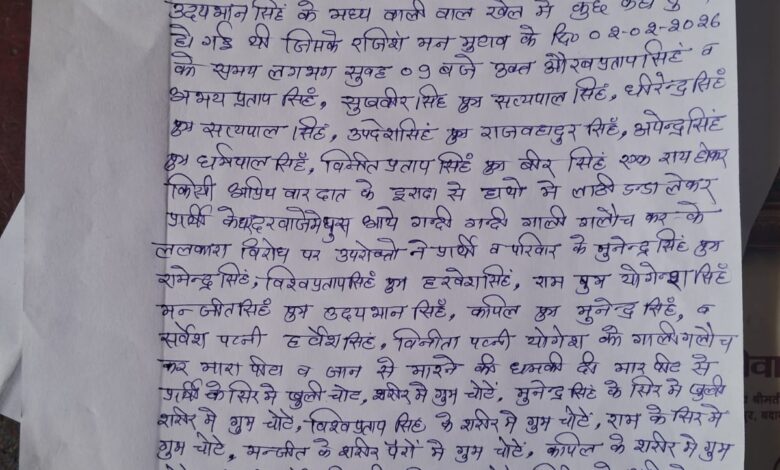 उदयभान सिंह के मध्य वाली वाल खेल में कुछ कहा
हो गई थी जिसके रंजिश मन मुटाव के दि० 02-02-2026
को समय लगभग सुवह 09 बजे उक्त गौरव प्रताप सिंह व
अभय प्रताप सिंह, सुखवीर सिंह पुत्र सत्यपाल सिंह, धीरेन्द्र सिंह
पुत्र सत्यपाल सिंह, उपदेश सिंह पुत्र राजवहादुर सिंह, अपेन्द्र सिंह
पुत्र धर्मपाल सिंह, विनीत प्रताप सिंह पुत्र बीर सिंह एक राय होकर
किसी अप्रिय वारदात के इरादा से हाथो मे लाठी डन्डा लेकर
प्रार्थी के घर दरवाजे मे घुस आये गन्दी गन्दी गाली गलौच कर के
ललकारा विरोध पर उपरोक्तो ने प्रार्थी व परिवार के मुनेन्द्र सिंह पुत्र
रामेन्द्र सिंह, विश्व प्रताप सिंह पुत्र हरवेश सिंह, राम पुत्र योगेन्श सिंह
मन्जीत सिंह पुत्र उदयभान सिंह, कपिल पुत्र मुनेन्द्र सिंह, व
सर्वेश पत्नी हर्वेश सिंह, विनीता पत्नी योगेश को गाली गलौच
कर मारा पीटा व जान से मारने की धमकी दी मार पीट से
प्रार्थी के सिर मे खुली चोट, शरीर मे गुम चोटें, मुनेन्द्र सिंह के सिर मे खुली
शरीर मे गुम चोटें, विश्व प्रताप सिंह के शरीर मे गुम चोटें, राम के सिर मे
गुम चोटें, मन्जीत के शरीर पैरों मे गुम चोटें, कपिल के शरीर मे गुम